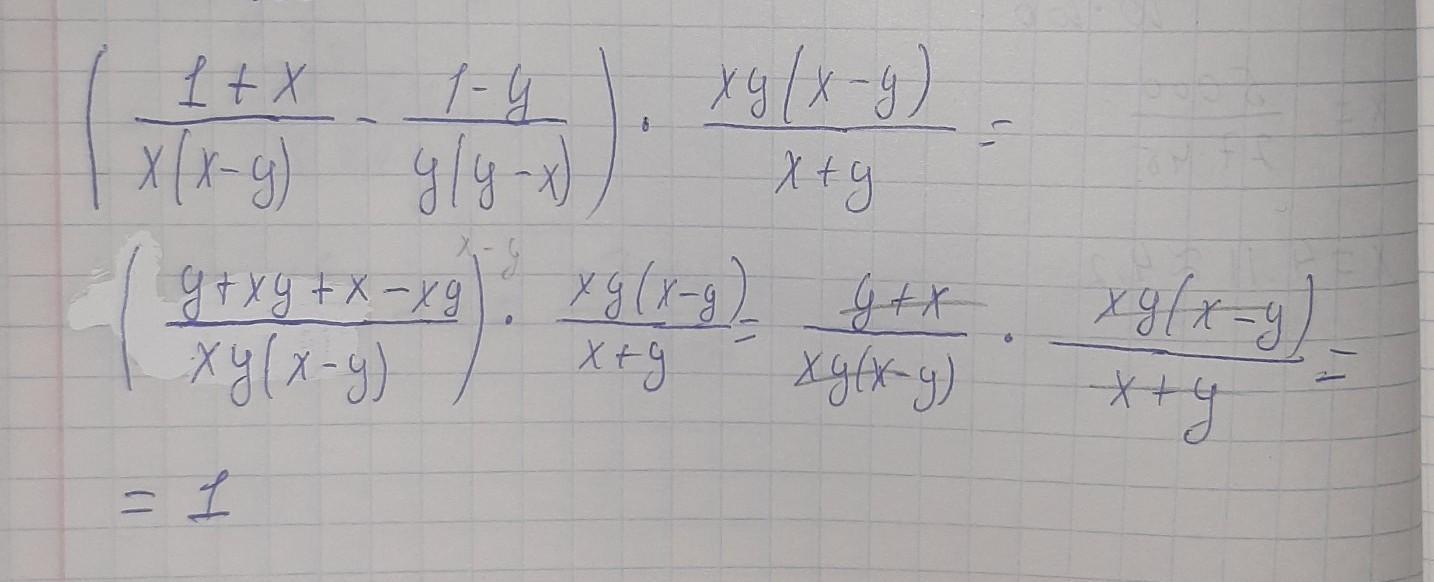 ( (1+x)/(x(x-y)) - (1-y)/(y(y-x)) ) · (xy(x-y))/(x+y) =
( (y+xy+x-xy)/(xy(x-y)) ) · (xy(x-y))/(x+y) = (y+x)/(xy(x-y)) · (xy(x-y))/(x+y) =
= 1